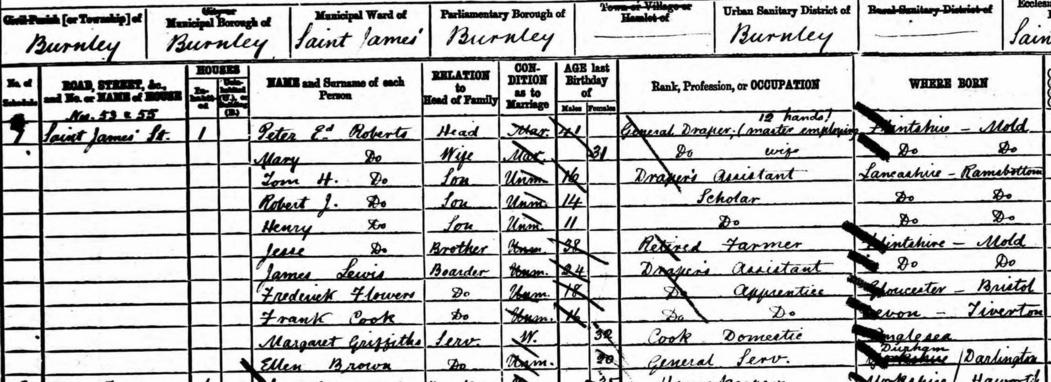 Civil Parish [or Township] of City or Municipal Borough of Municipal Ward of Parliamentary Borough of Town or Village or Hamlet of Urban Sanitary District of Rural Sanitary District of Eccles
Burnley Burnley Saint James' Burnley Burnley Sain
No. of Schedule ROAD, STREET, &c., and No. or NAME of HOUSE HOUSES NAME and Surname of each Person RELATION to Head of Family CONDITION as to Marriage AGE last Birthday of Males Females Rank, Profession, or OCCUPATION WHERE BORN
Nos. 53 & 55 12 hands)
7 Saint James' St. 1 Peter Ed Roberts Head Mar. 41 General Draper, (master employing Flintshire - Mold
Mary Do Wife Mar. 31 Do wife Do Do
Tom H. Do Son Unm. 16 Draper's Assistant Lancashire - Ramsbottom
Robert J. Do Son Unm. 14 Scholar Do Do
Henry Do Son Unm. 11 Do Do Do
Jesse Do Brother Unm. 38 Retired Farmer Flintshire - Mold
James Lewis Boarder Unm. 24 Draper's Assistant Do Do
Frederick Flowers Do Unm. 18 Do Apprentice Gloucester - Bristol
Frank Cook Do Unm. 16 Do Do Devon - Tiverton
Margaret Griffiths Serv. W. 32 Cook Domestic Anglesea
Durham
Ellen Brown Do Unm. 20 General Serv. Yorkshire / Darlington
Yorkshire Haworth